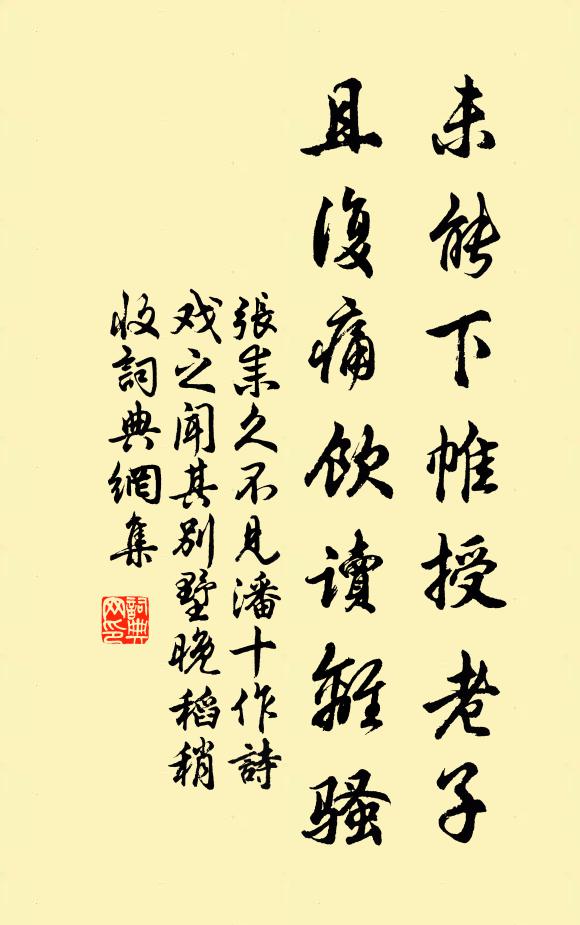 未能下帷授老子
且復痛飲讀離騷
張耒久不見潘十作詩
戏之聞其别墅晚稻稍
收詞典網集
詞典
网印